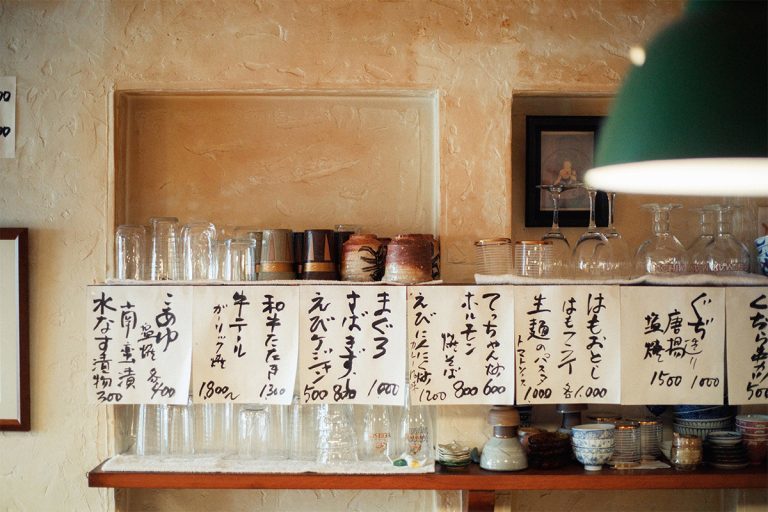 こあゆ
塩焼 各400
南蛮漬
水なす漬物
300
和牛たたき
1300
牛テール
ガーリック焼
1,800
まぐろ
1000
さばきずし
800
えびケジャン
500
てっちゃんなべ
600
ホルモン
焼そば
800
えびにんにく炒
1200
はもおとし
はもフライ
各1.000
生麺のパスタ
トマトソース
1.000
ぐぢ
造り
1000
唐揚
塩焼
1500
500